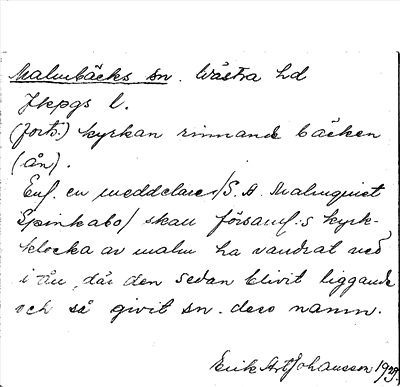 Malmbäcks sn. Västra hd
Jkpgs l.
(forts.) kyrkan rinnande bäcken
(ån).
Enl. en meddelare /S. A. Malmquist
Spinkabo/ skall församl:s kyrk-
klocka av malm ha vandrat ned
i ån, där den sedan blivit liggande
och så givit sn. dess namn.
Erik Art Johansson 1929.